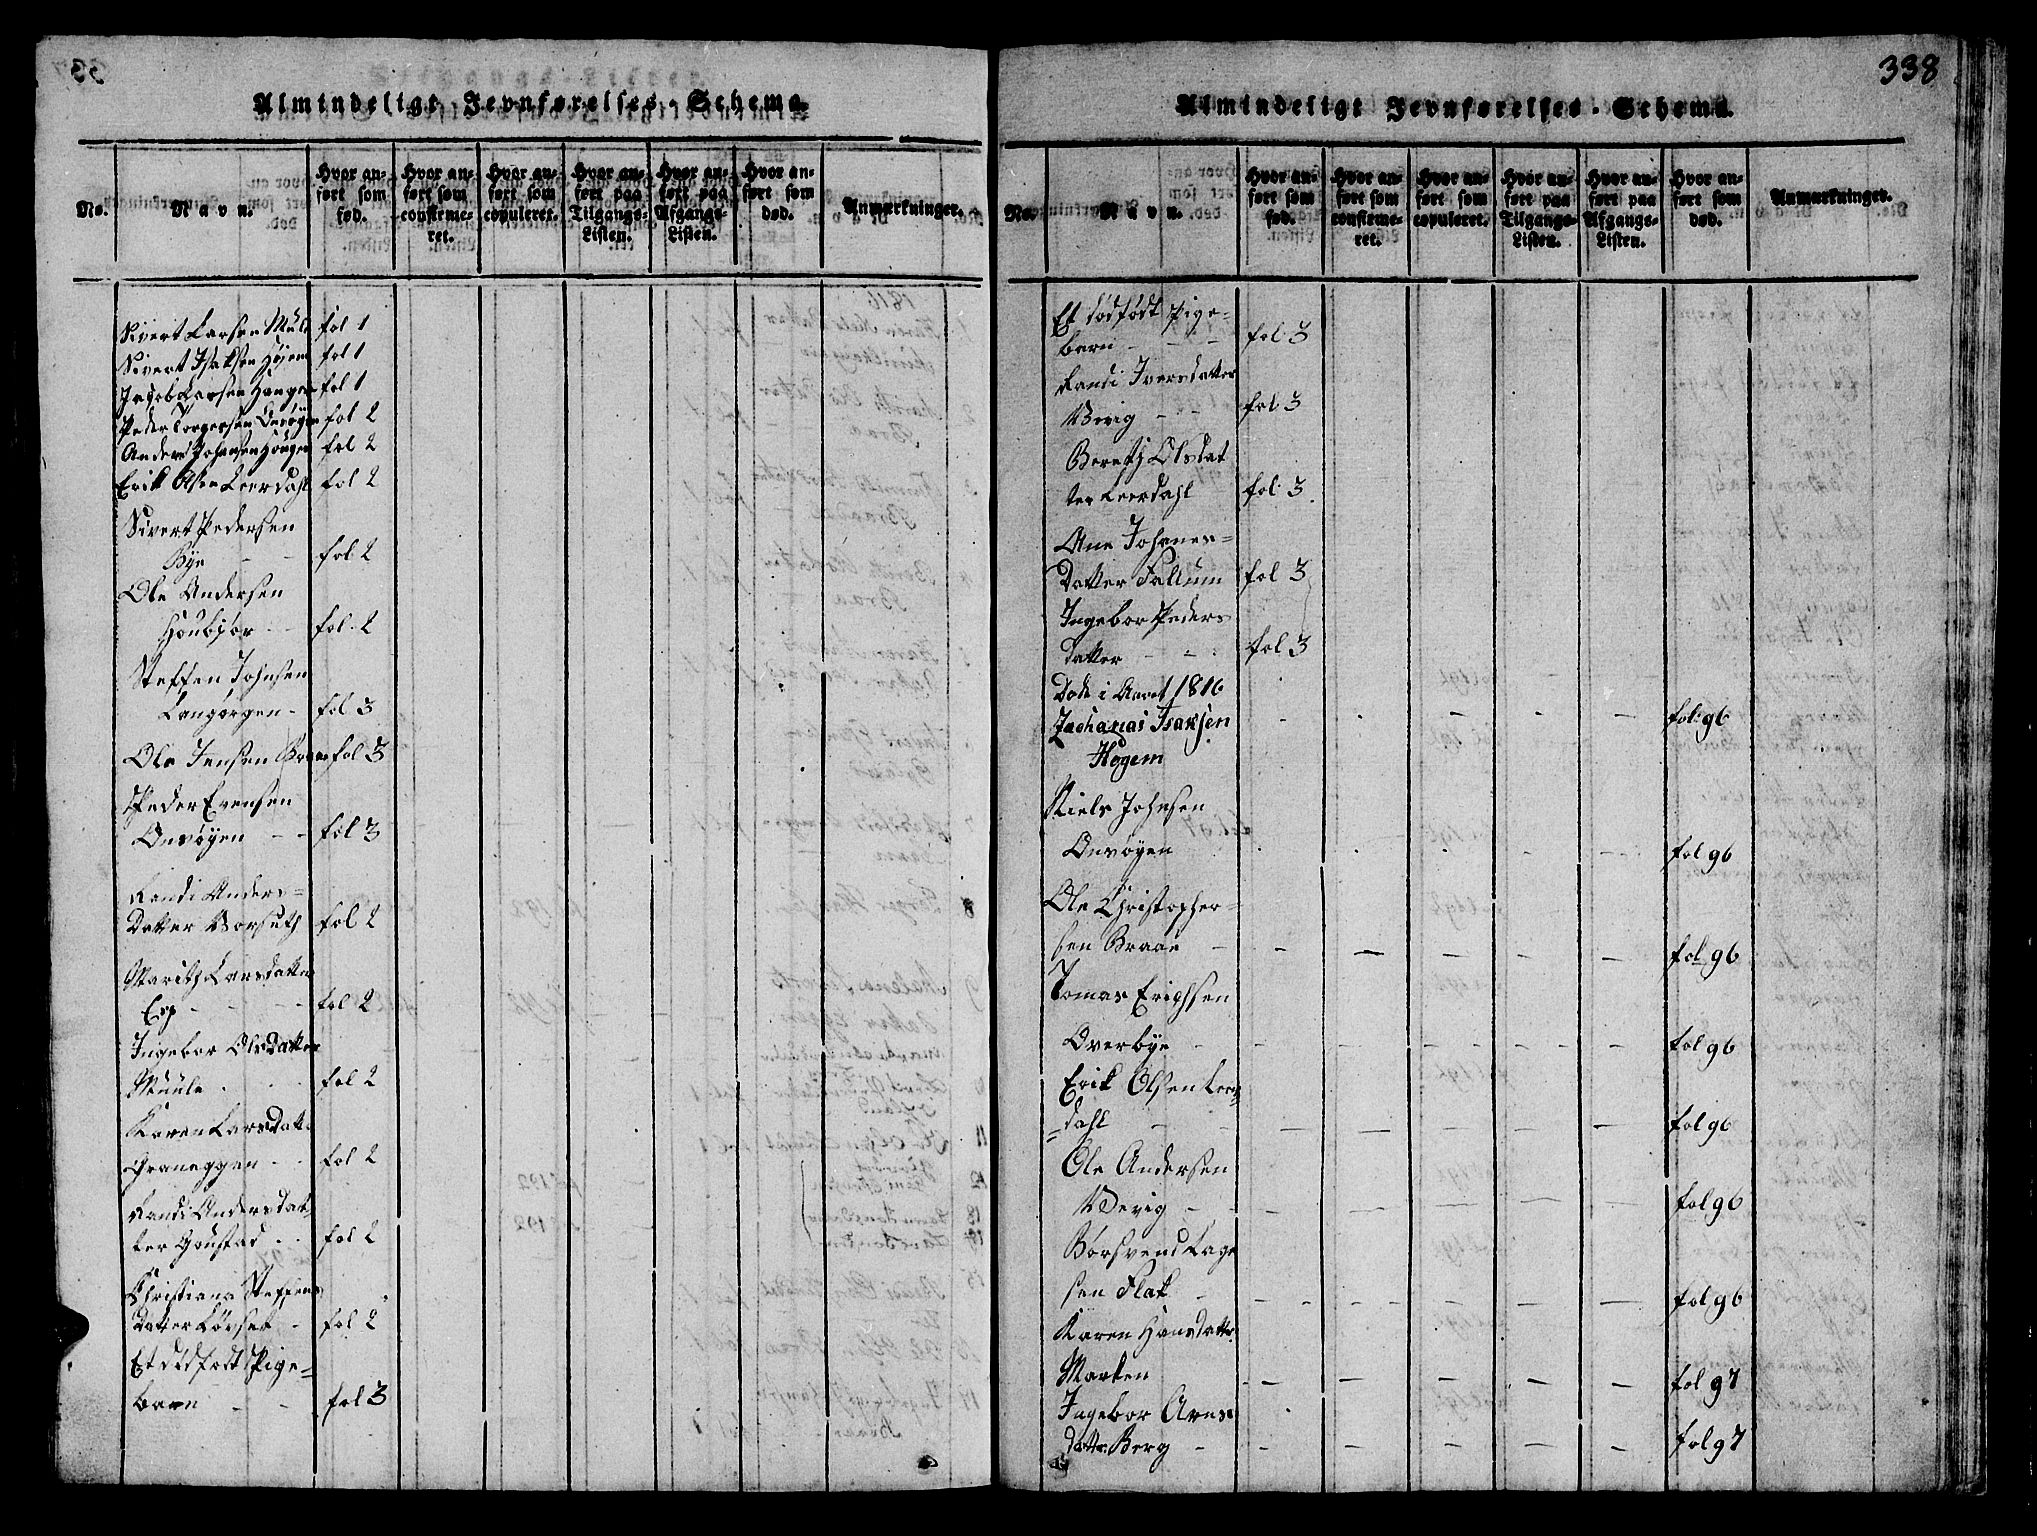 Almindeligt Jevnførelses-Schema.
No.
Navn.
Hvor an-
ført som
fød.
Hvor an-
ført som
confirme-
ret.
Hvor an-
ført som
copuleret.
Hvor an-
ført paa
Tilgangs-
Listen.
Hvor an-
ført paa
Afgangs-
Listen.
Hvor an-
ført som
død.
Anmærkninger.
Sivert Larsen Mule fol 1
Sivert Isaksen Høyem fol 1
Jacob Larsen Haugen fol 1
Peder Torgersen Onsøyen fol 2
Anders Johansen Haugen fol 2
Erik Olsen Leerdahl fol 2
Sivert Pedersen
Bye - - fol 2
Ole Andersen
Houbjør - - fol. 2
Steffen Johnsen
Langørgen - fol 3
Ole Jensen Braae fol 3
Peder Evensen
Onsøyen - - fol 3
Randi Anders=
Datter Vorseth fol 2
Marith Larsdatter
Esp - - - fol 2
Ingebor Olsdatter
Muule . . fol 2
Karen Larsdatter
Graneggen - - fol 2
Randi Andersdat
ter Goustad . . fol 2
Christiana Steffens
Datter Løvset - fol 2
Et dødfødt Pige=
barn - - fol 3
338
Almindeligt Jevnførelses-Schema.
No.
Navn.
Hvor an-
ført som
fød.
Hvor an-
ført som
confirme-
ret.
Hvor an-
ført som
copuleret.
Hvor an-
ført paa
Tilgangs-
Listen.
Hvor an-
ført paa
Afgangs-
Listen.
Hvor an-
ført som
død.
Anmærkninger.
Et dødfødt Pige=
barn - - - fol. 3
Randi Iversdatter
Wevig - - fol. 3
Bereth Olsdat
ter Leerdahl fol. 3
Ane Johanes=
Datter Fallum fol 3
Ingebor Peders
datter - - fol 3
Døde i Aaret 1816
Zacharias Isaksen fol: 96
Høgem
Niels Johnsen
Onsøyen fol 96
Ole Christopher=
sen Braae - fol 96
Tomas Erichsen
Overbye - fol 96
Erik Olsen Leer=
=dahl - fol 96
Ole Andersen
Wevig - - fol 96
Børsvend Lage
sen Flak - fol 96
Karen Hansdatter
Marken fol 97
Ingebor Arns
datter Berg - fol 97